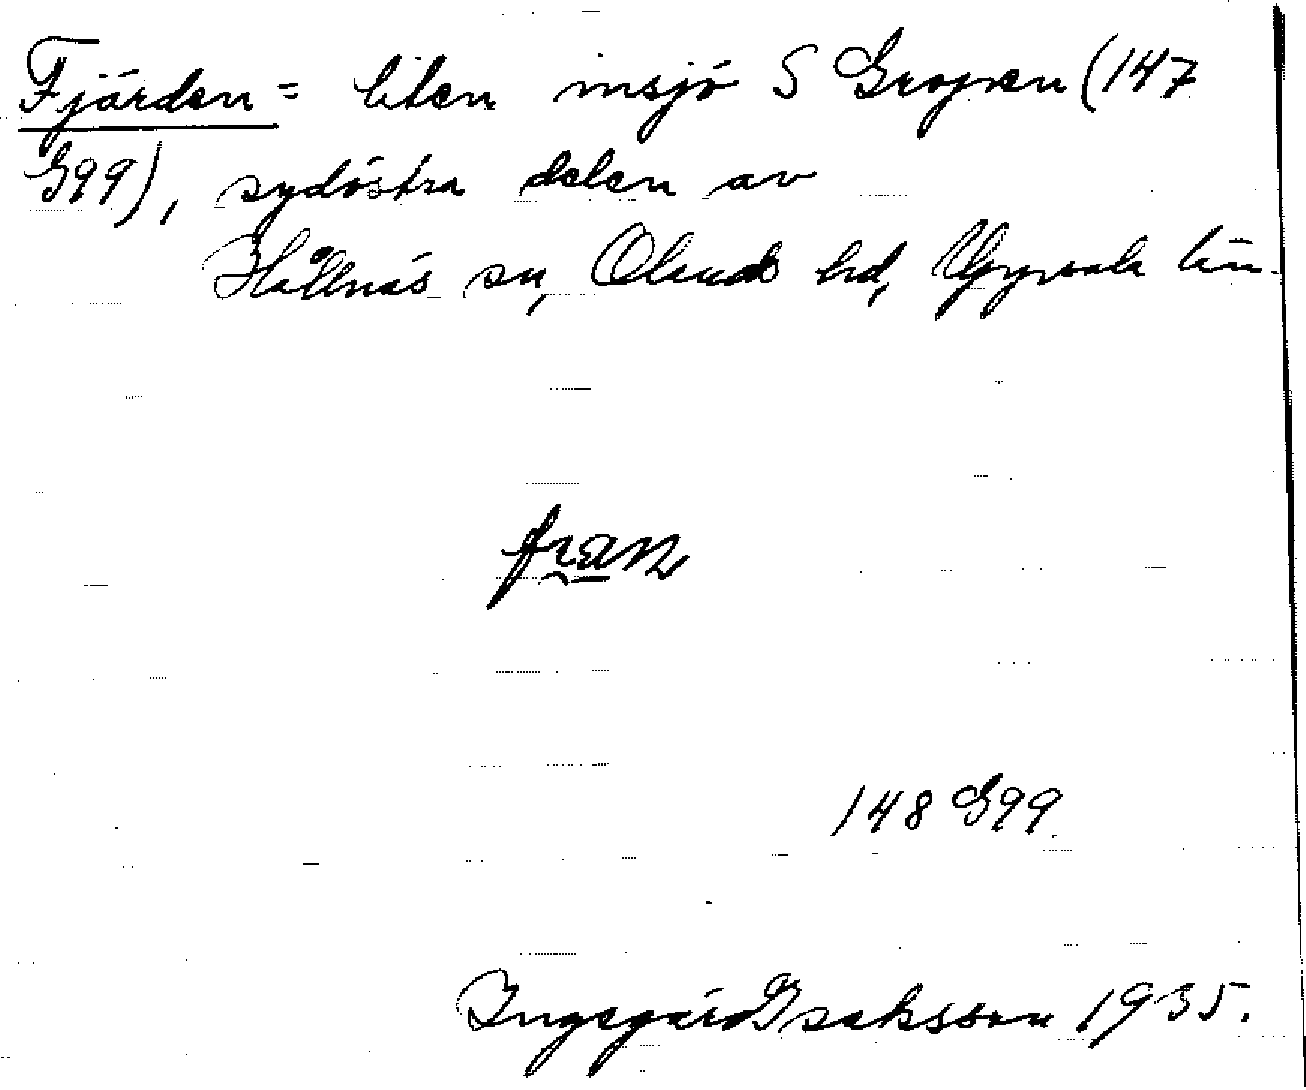 Fjärden = liten insjö S Gropen (147
G99), sydöstra delen av
Hållnäs sn, Olands hd, Uppsala län.
148 G99
Ingegärd Isaksson 1935.